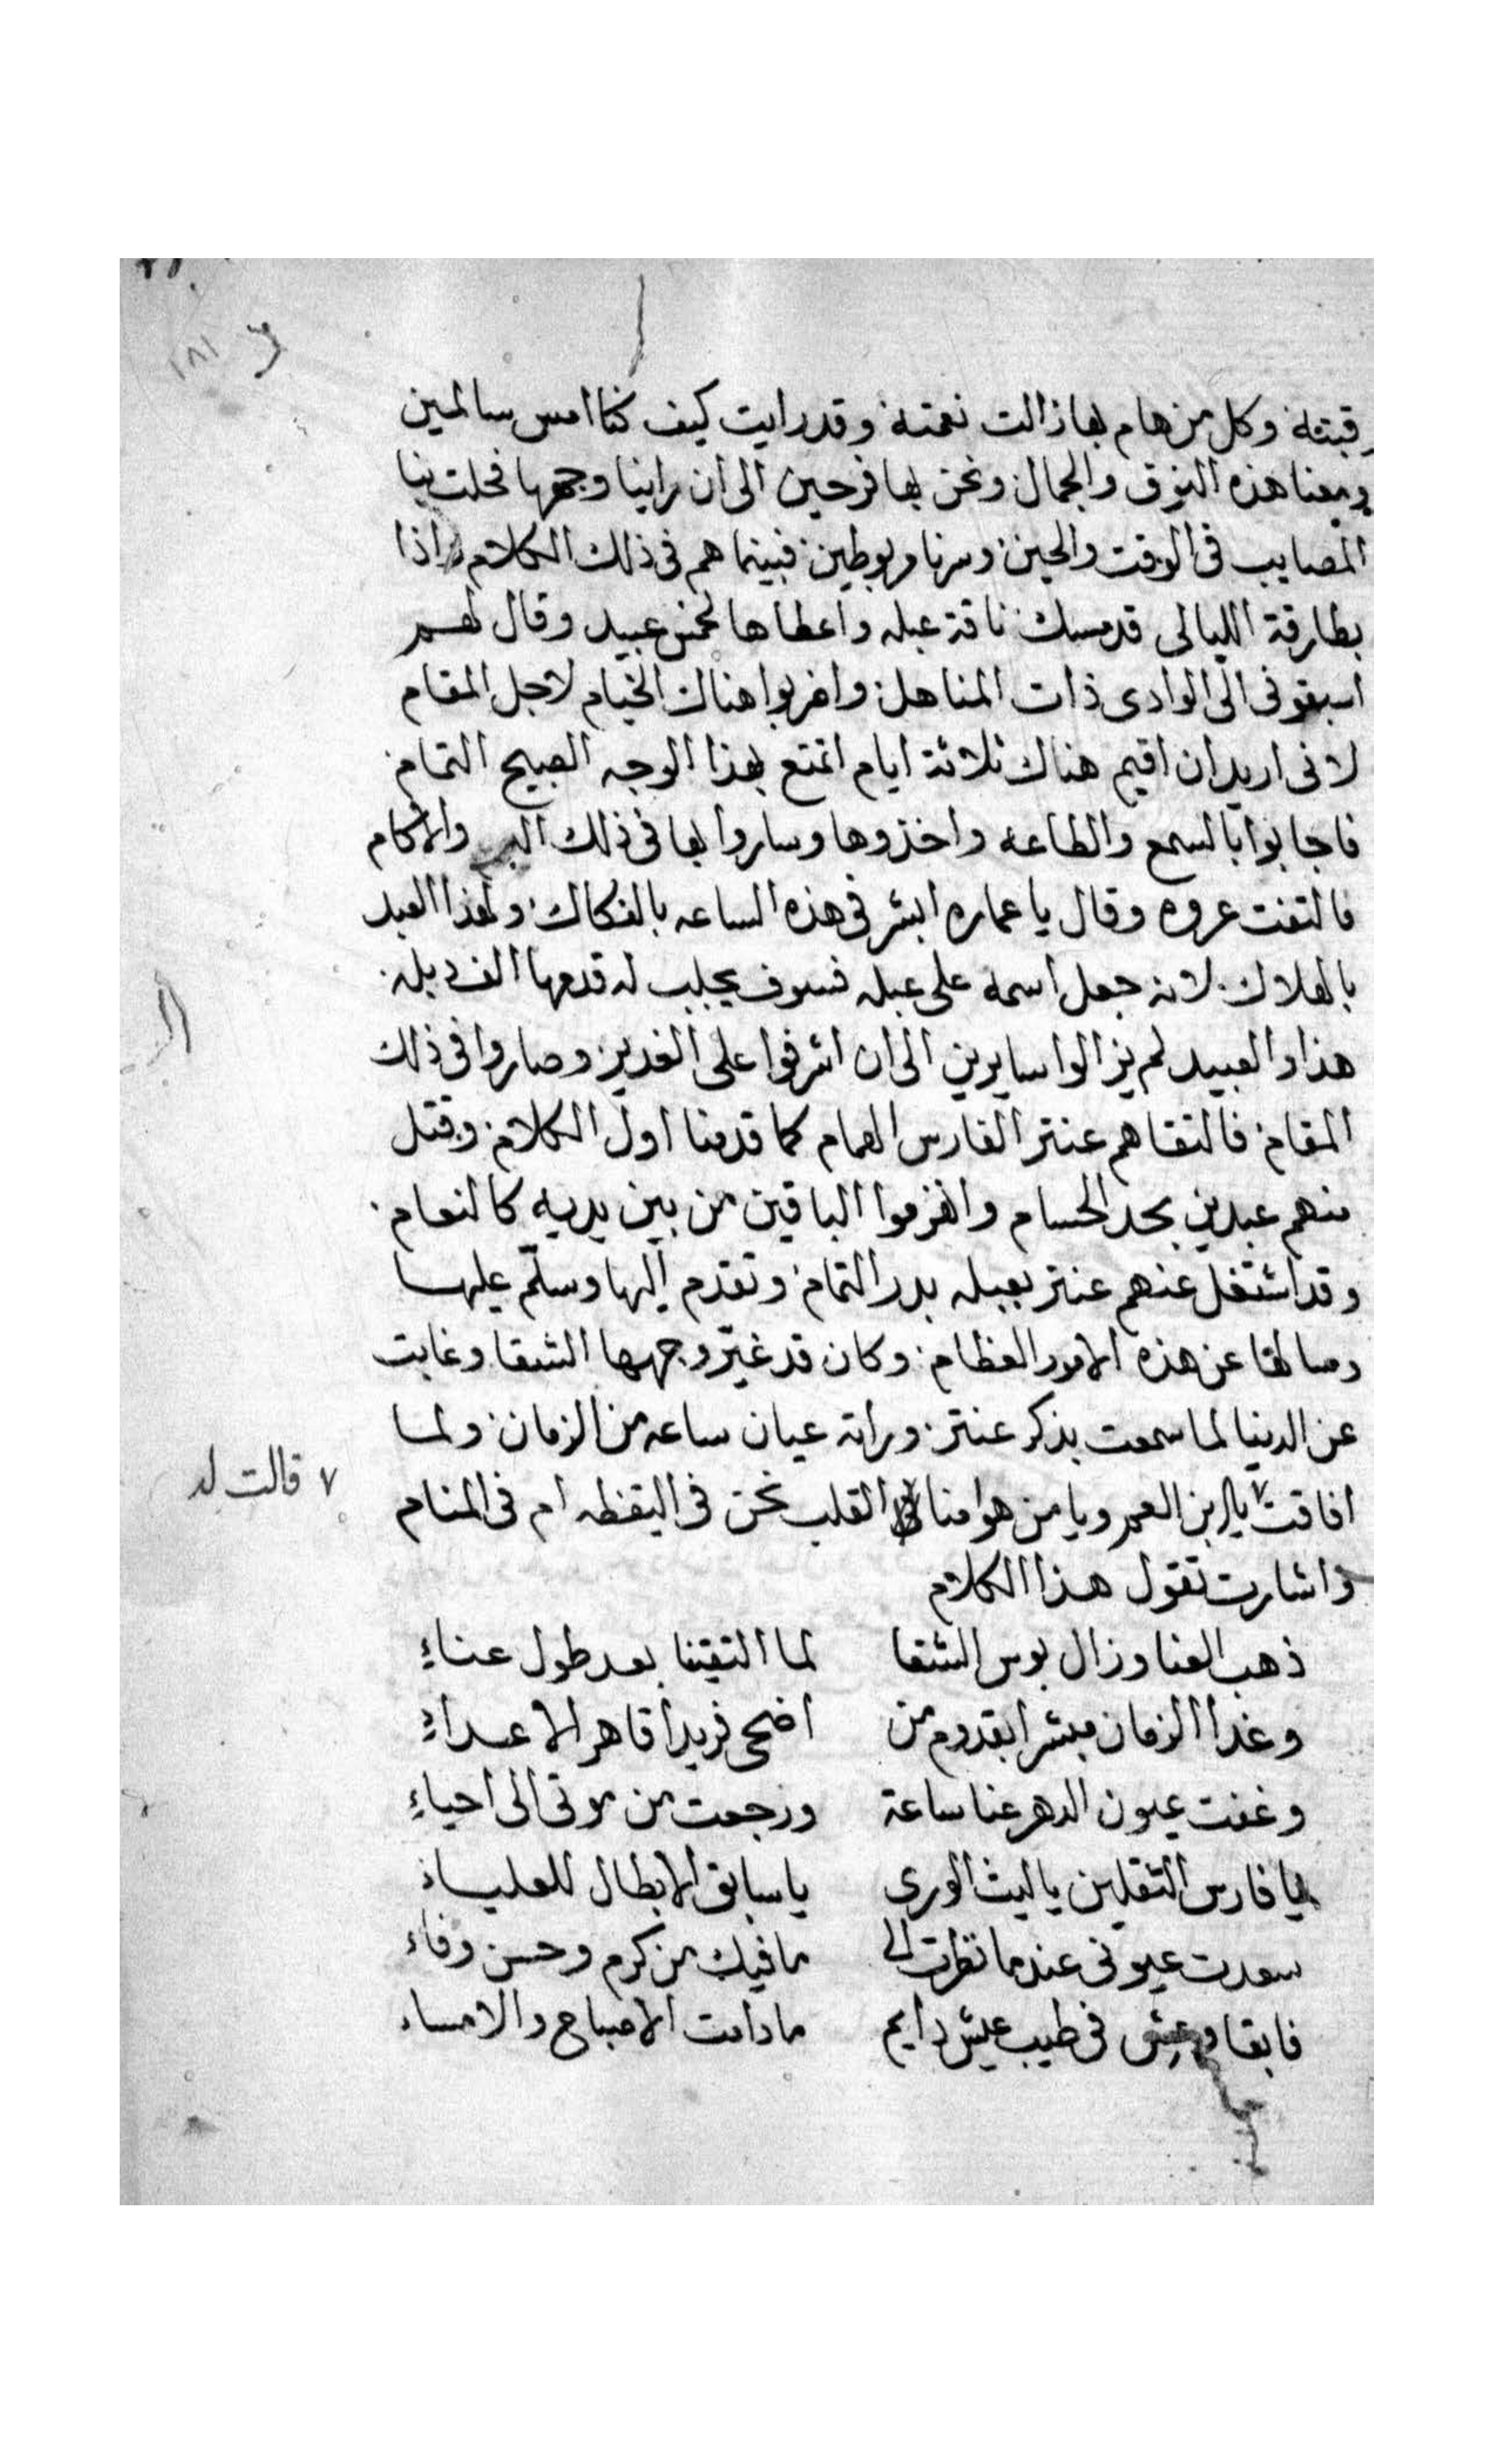 ١٨١
رقبته وكل من هام بها زالت نعمته وقد رايت كيف كنا امس سالمين
ومعنا هذه النوق والجمال ونحن بها فرحين الى ان راينا وجهها فحلت بنا
المصايب فى الوقت والحين وسرنا مربوطين فبينما هم فى ذلك الكلام واذا
بطارقة الليالى قد مسك ناقة عبله واعطاها لخمس عبيد وقال لهم
اسبقونى الى الوادى ذات المناهل واضربوا هناك الخيام لاجل المقام
لانى اريد ان اقيم هناك ثلاثة ايام اتمتع بهذا الوجه الصبيح التمام
فاجابوا بالسمع والطاعه واخذوها وساروا بها فى ذلك البر والاكام
فالتفت عروه وقال يا عماره ابشر فى هذه الساعه بالفكاك ولهذا العبد
بالهلاك لانه جعل اسمه على عبله فسوف يجلب له قدمها الف ديله
هذا والعبيد لم يزالوا سايرين الى ان اشرفوا على الغدير وصاروا فى ذلك
المقام فالتقاهم عنتر الفارس الهمام كما قدمنا اول الكلام وقتل
منهم عبدين بحد الحسام وانهزموا الباقين من بين يديه كالنعام
وقد اشتغل عنهم عنتر بعبله بدر التمام وتقدم اليها وسلّم عليها
وسالها عن هذه الامور العظام وكان قد غيّر وجهها الشقا وغابت
عن الدنيا لما سمعت بذكر عنتر وراته عيان ساعه من الزمان ولما
افاقت ٧ يا ابن العم ويا من هو منا القلب نحن فى اليقظه ام فى المنام
٧ قالت له
واشارت تقول هذا الكلام
ذهب العنا وزال بوس الشقا لما التقينا بعد طول عناءِ
وغدا الزمان مبشرا بقدوم من اضحى فريداً قاهر الاعداءِ
وغفت عيون الدهر عنا ساعة ورجعت من موتى الى احياءِ
يا فارس الثقلين يا ليث الورى يا سابق الابطال للعلياء
سعدت عيونى عندما نظرت الى ما فيك من كرم وحسن وفاء
فابقا وعش فى طيب عيش دايم ما دامت الاصباح والامساء